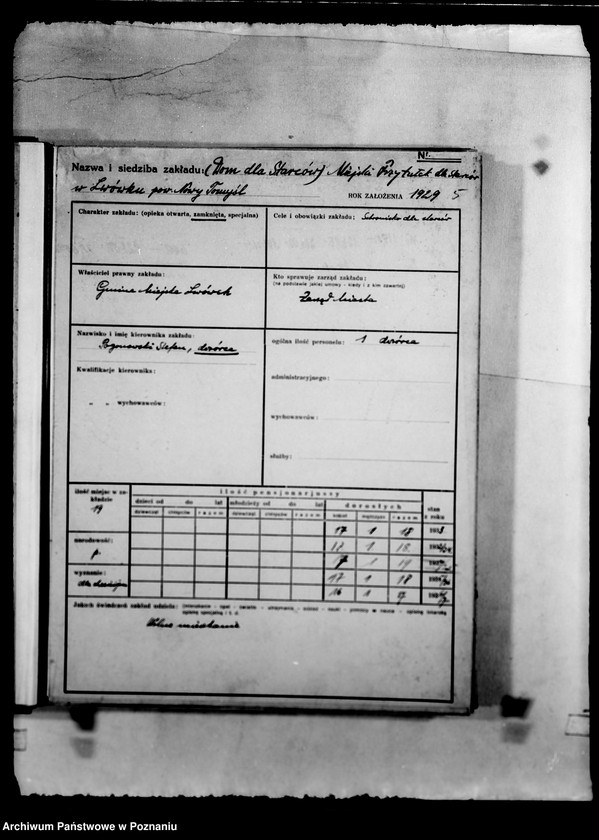 Nr.
Nazwa i siedziba zakładu: (Dom dla Starców) Miejski Przytułek dla starców
w Lwówku pow. Nowy Tomyśl
ROK ZAŁOŻENIA 1929 5
Charakter zakładu: (opieka otwarta, zamknięta, specjalna)
Cele i obowiązki zakładu: Schronisko dla starców
Właściciel prawny zakładu:
Gmina Miejska Lwówek
Kto sprawuje zarząd zakładu:
(na podstawie jakiej umowy - kiedy i z kim zawartej)
Zarząd Miasta
Nazwisko i imię kierownika zakładu:
Stefan, dozórca
Kwalifikacje kierownika:
„ „ wychowawców:
ogólna ilość personelu: 1 dozórca
administracyjnego:
wychowawców:
służby:
ilość miejsc w zakładzie
19
narodowość:
p.
wyznanie:
ilość pensjonarjuszy
dzieci od do lat młodzieży od do lat dorosłych
dziewcząt chłopców razem dziewcząt chłopców razem kobiet mężczyzn razem
stan z roku
17 1 18
1 18
17 1
17 1 18
16 1 17
Jakich świadczeń zakład udziela: (mieszkanie - opał - światło - utrzymanie - odzież - nauki - pomocy w nauce - opieki lekarskiej
opieki specjalnej i t. d.
mieszkanie
Archiwum Państwowe w Poznaniu